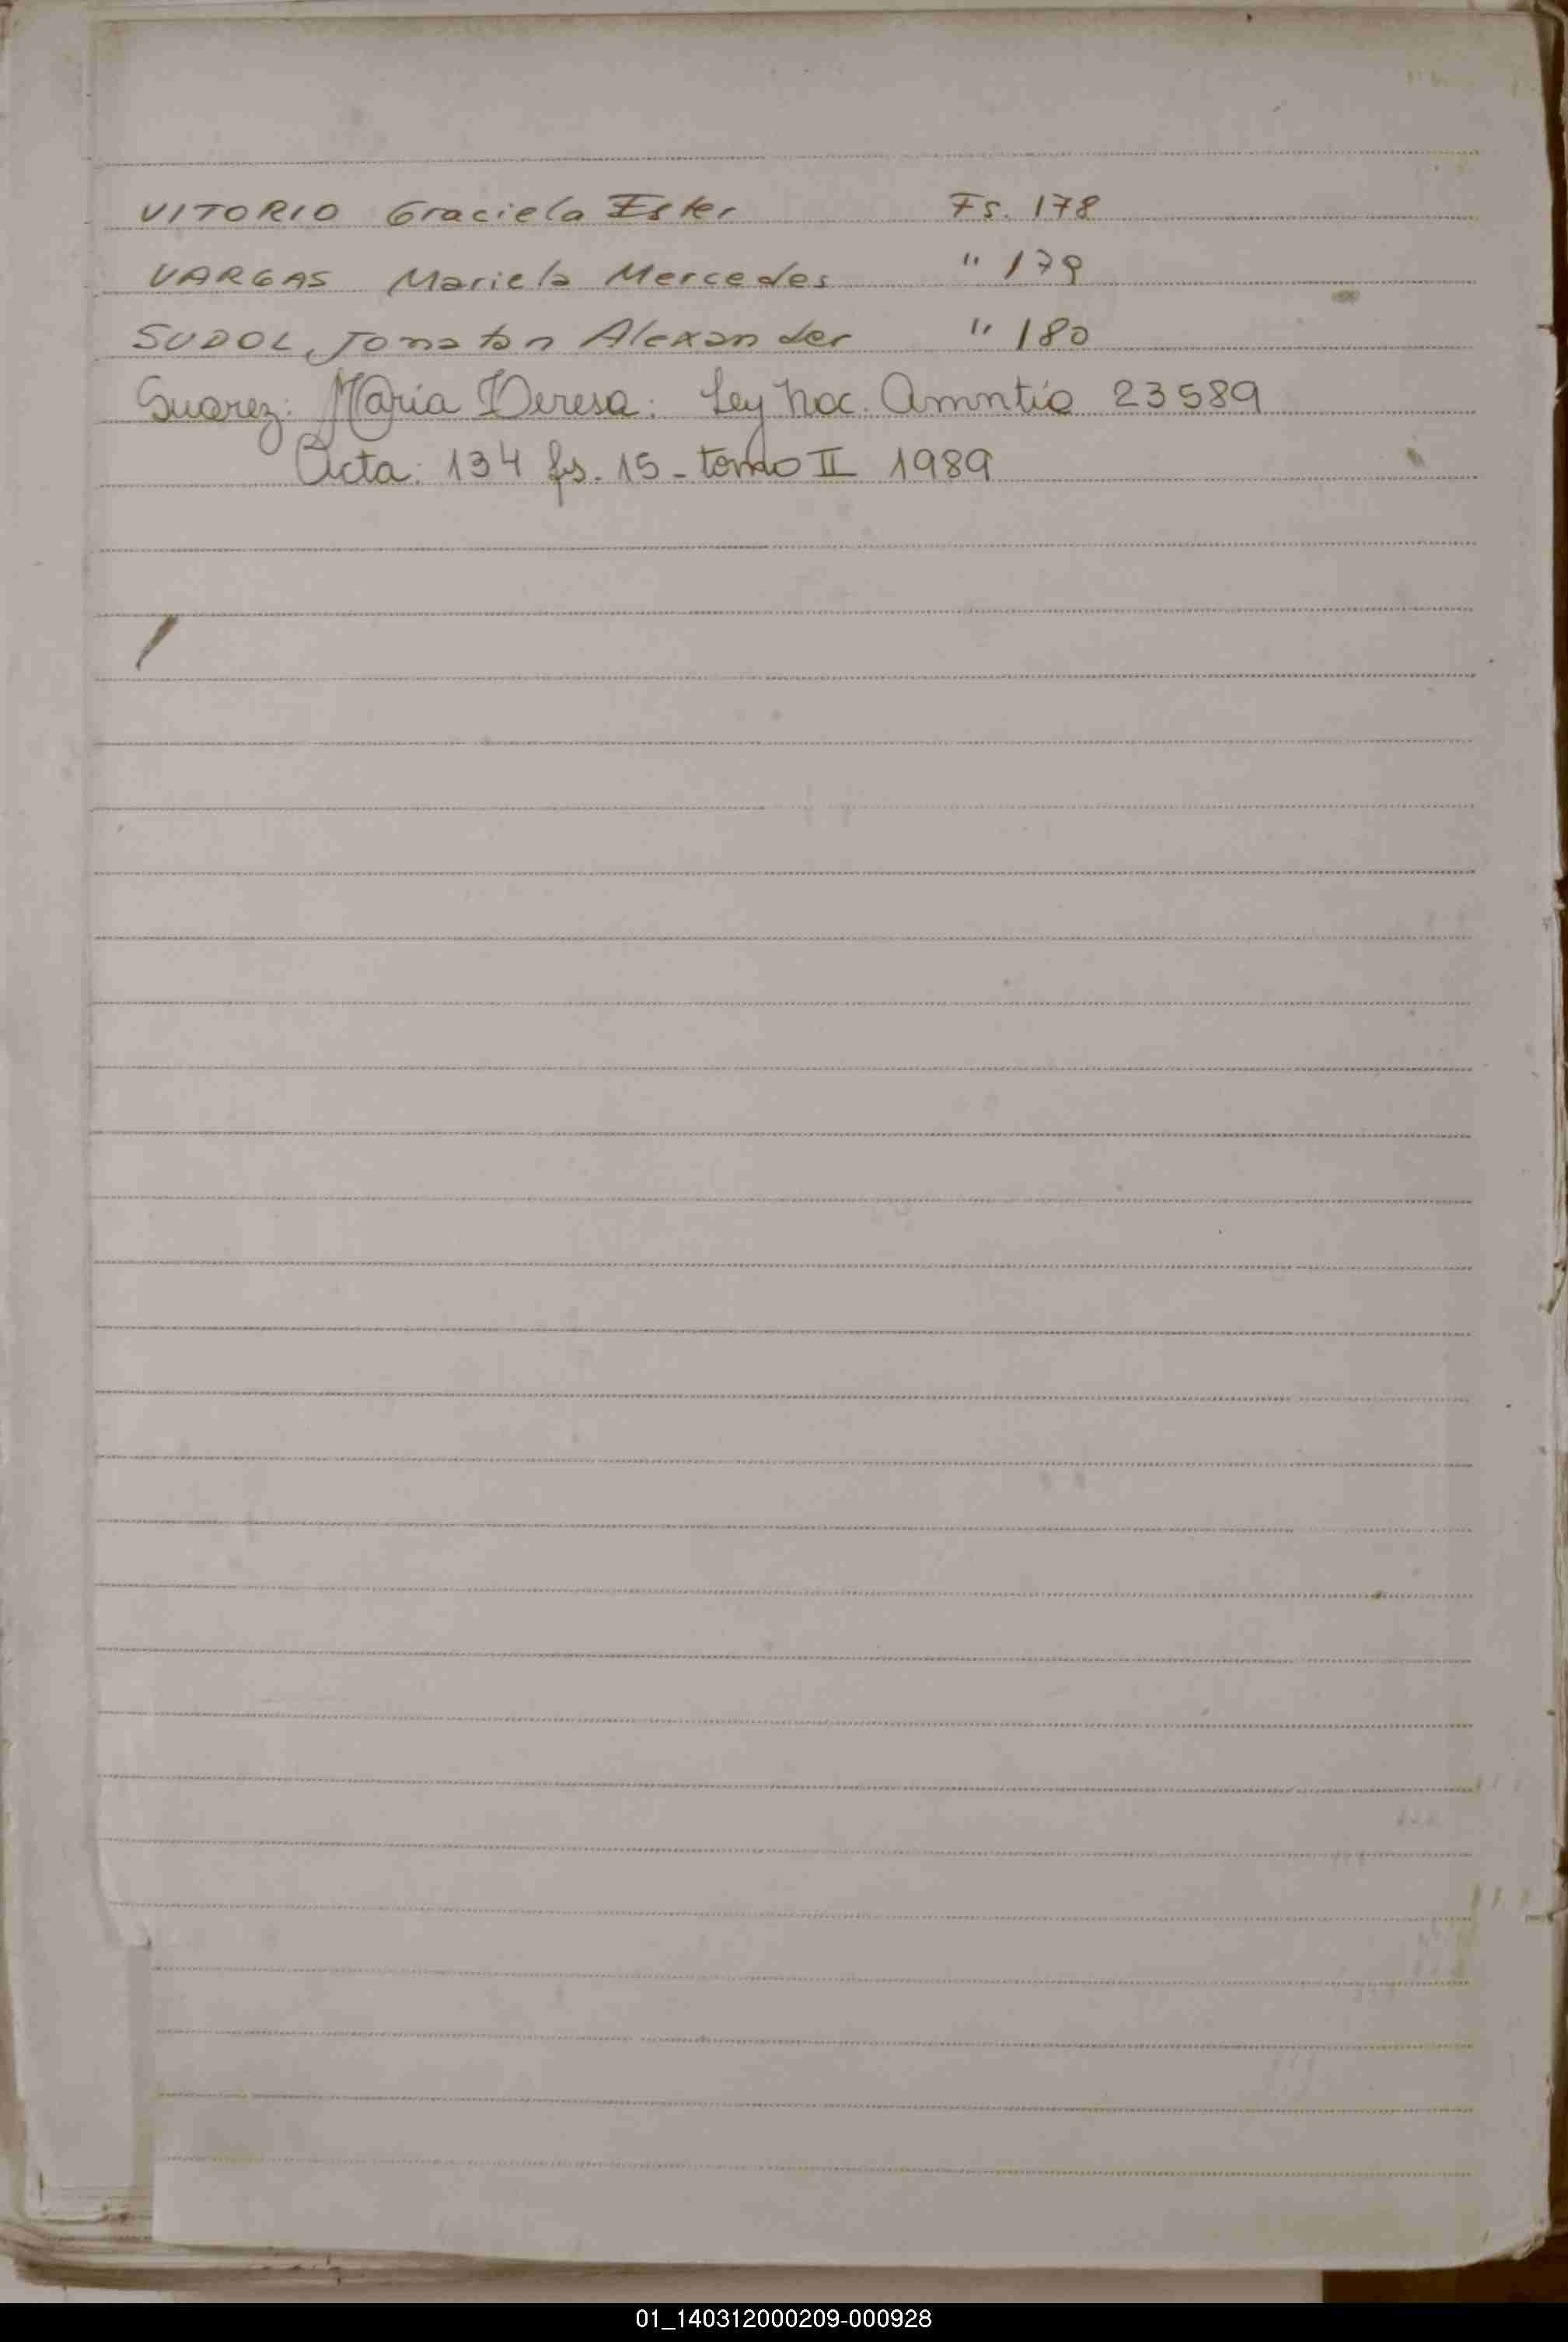 VITORIO Graciela Ester Fs. 178
VARGAS Mariela Mercedes " 179
SUDOL, Jonatan Alexander " 180
Suarez: Maria Teresa. Ley Nac. Amntía 23589
Acta: 134 fs. 15 - tomo II 1989
01_140312000209-000928